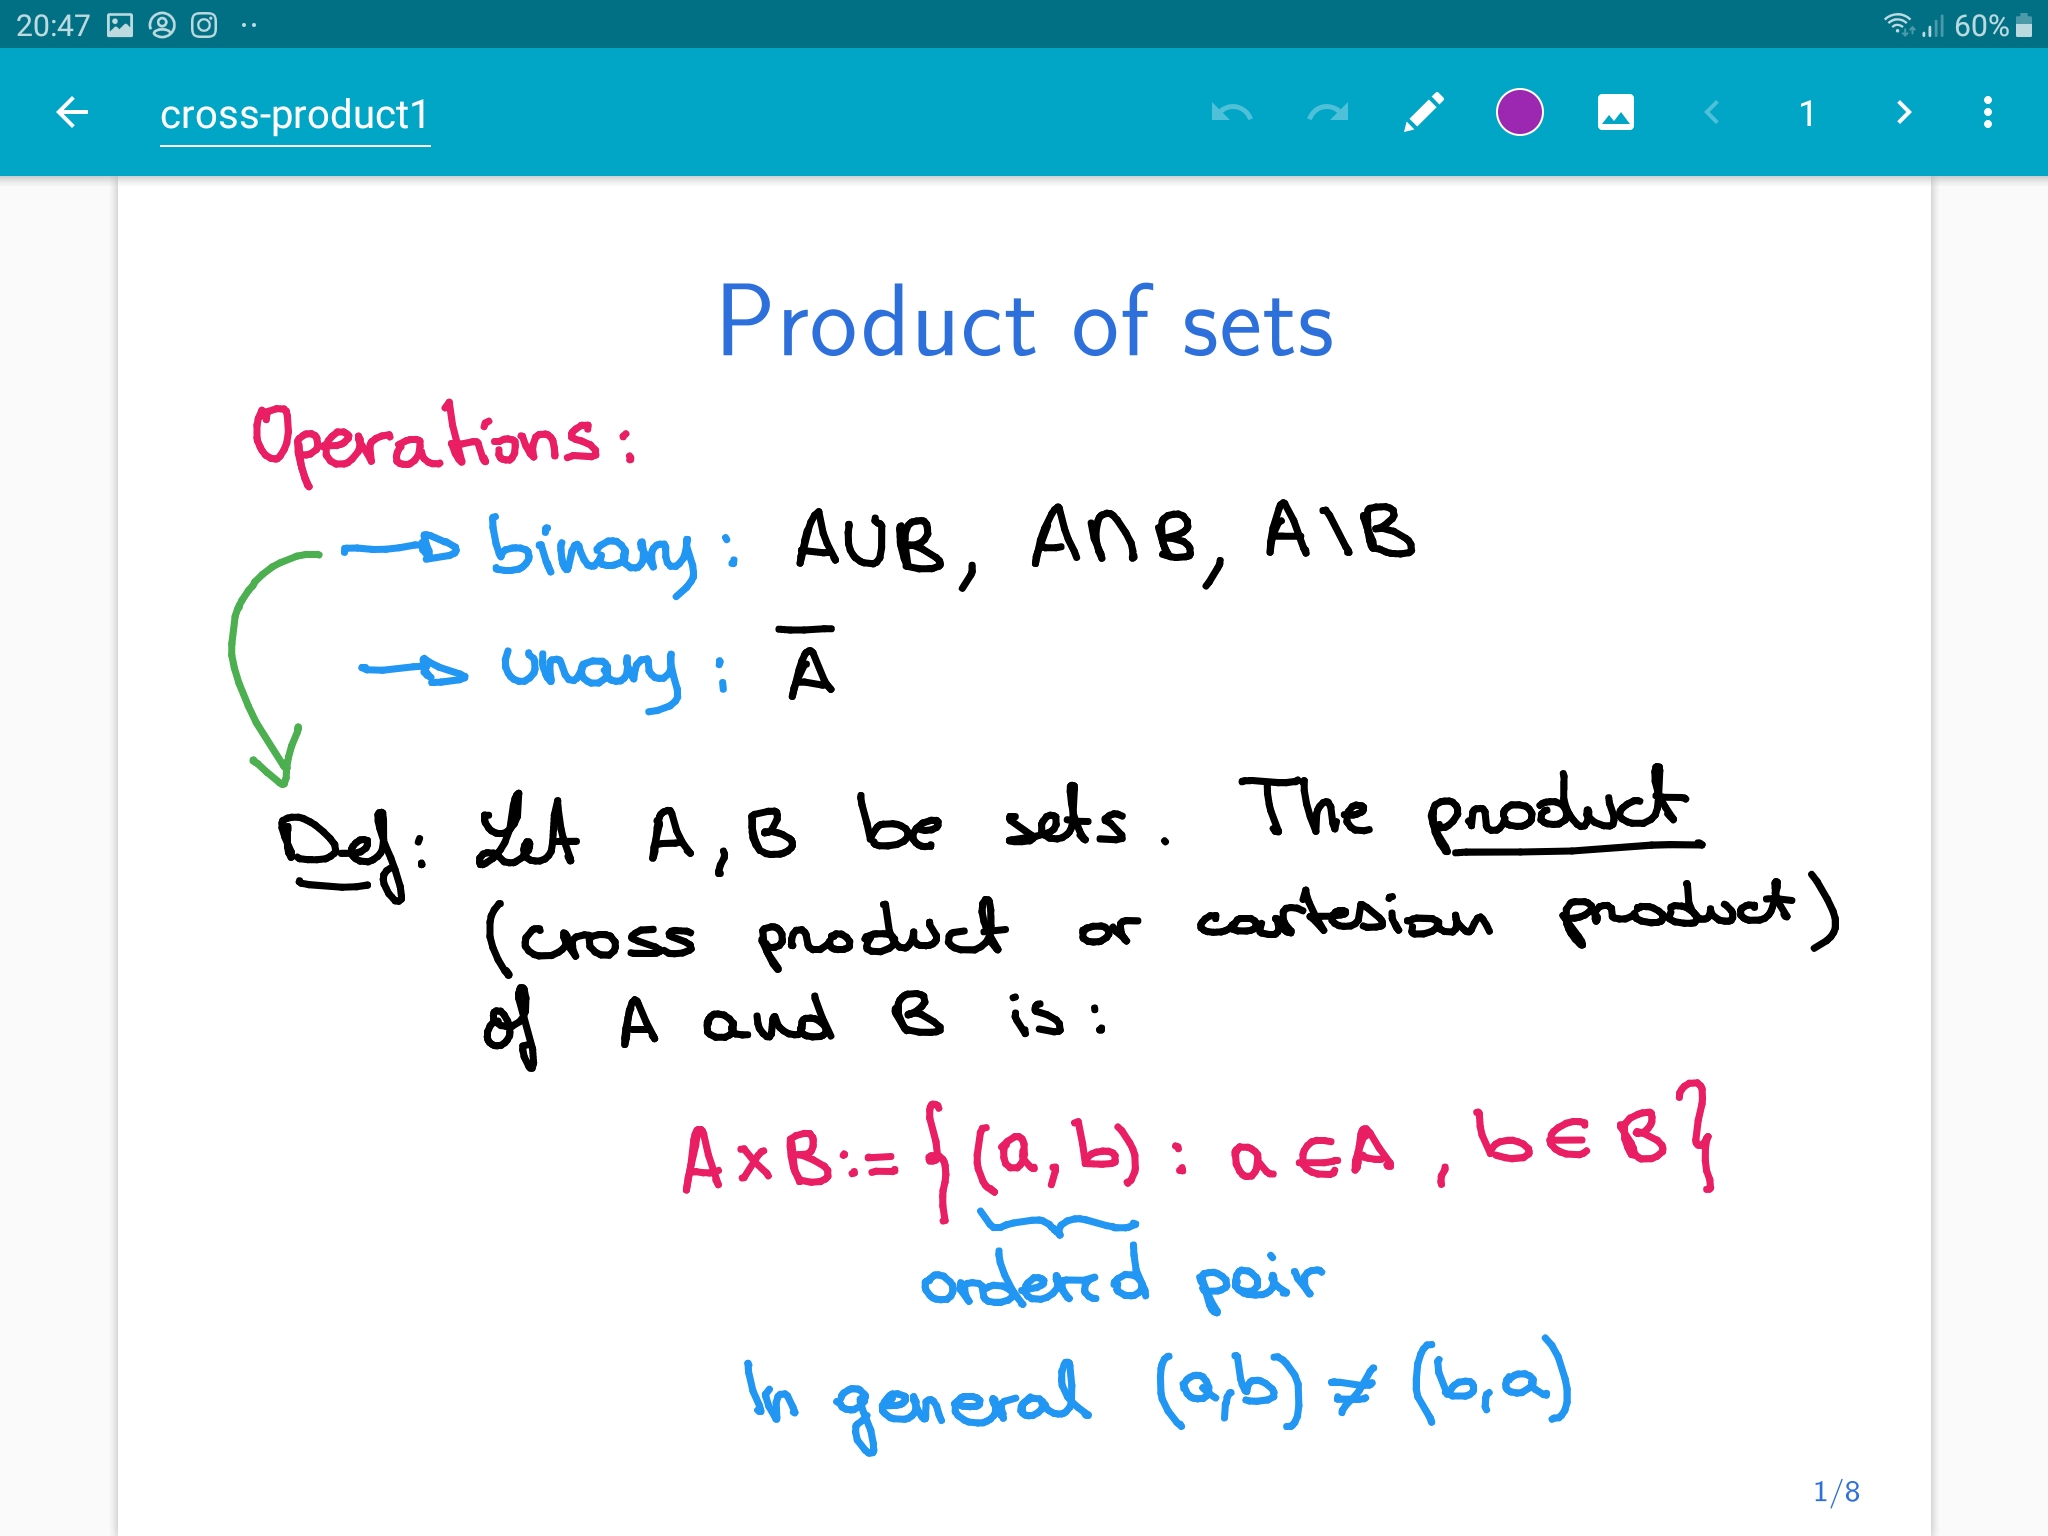 20:47
60%
cross-product1
1
Product of sets
Operations:
binary: A∪B, A∩B, A\B
unary: A̅
Def: Let A, B be sets. The product
(cross product or cartesian product)
of A and B is:
A×B:= {(a,b): a∈A, b∈B}
ordered pair
In general (a,b) ≠ (b,a)
1/8